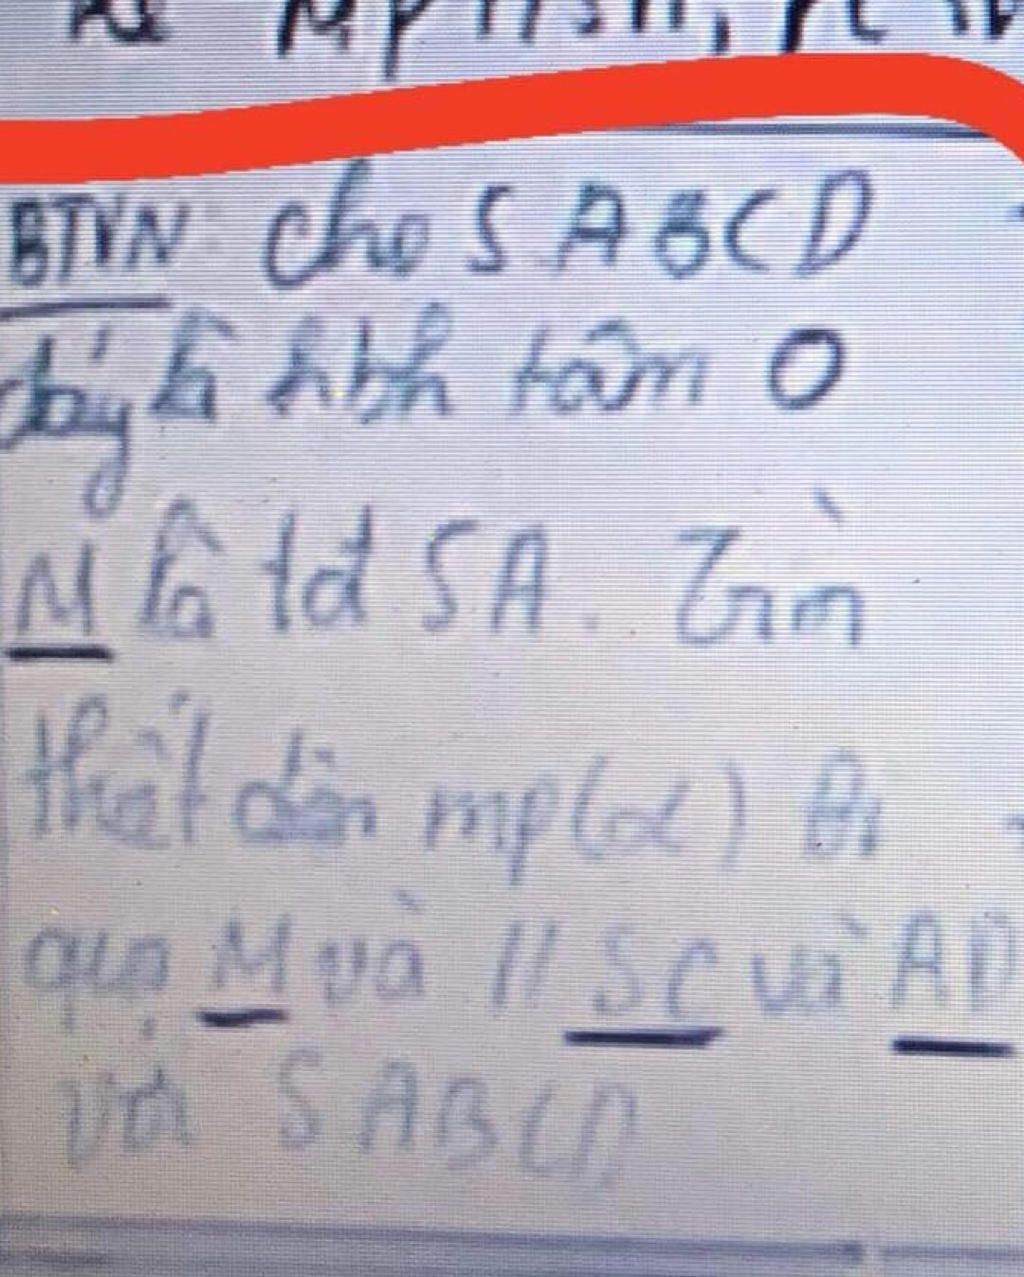 BTVN cho S ABCD
đáy là hbh tâm O
M là tđ SA. Tìm
thiết diện mp(α) đi
qua M và // SC và AD
với S ABCD